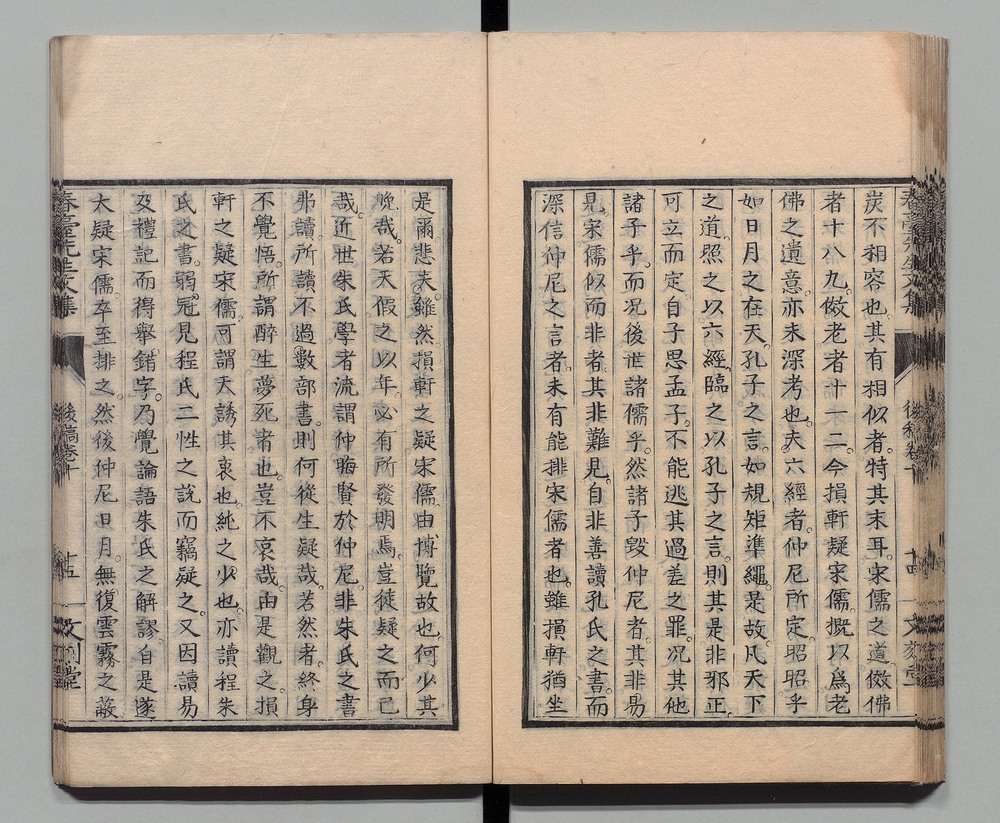 炭不相容也。其有相似者。特其末耳。宋儒之道。倣佛
者十八九。倣老者十一二。今損軒疑宋儒。概以爲老
佛之遺意。亦未深考也。夫六經者。仲尼所定。昭昭乎
如日月之在天。孔子之言。如規矩準繩。是故凡天下
之道。照之以六經。臨之以孔子之言。則其是非邪正。
可立而定。自子思孟子。不能逃其過差之罪。况其他
諸子乎。而况後世諸儒乎。然諸子毀仲尼者。其非易
見。宋儒似而非者。其非難見。自非善讀孔氏之書。而
深信仲尼之言者。未有能排宋儒者也。雖損軒猶坐
春臺先生文集
後稿卷十
十四
文刻堂
是爾。悲夫。雖然損軒之疑宋儒。由博覽故也。何少其
晚哉。若天假之以年。必有所發明焉。豈徒疑之而已
哉。近世朱氏學者流。謂仲晦賢於仲尼。非朱氏之書
弗讀。所讀不過數部書。則何從生疑哉。若然者。終身
不覺悟。所謂醉生夢死者也。豈不哀哉。由是觀之。損
軒之疑宋儒。可謂天誘其衷也。純之少也。亦讀程朱
氏之書。弱冠見程氏二性之說而竊疑之。又因讀易
及禮記而得舉錯字。乃覺論語朱氏之解謬。自是遂
大疑宋儒。卒至排之。然後仲尼日月。無復雲霧之蔽
春臺先生文集
後稿卷十
十五
文刻堂